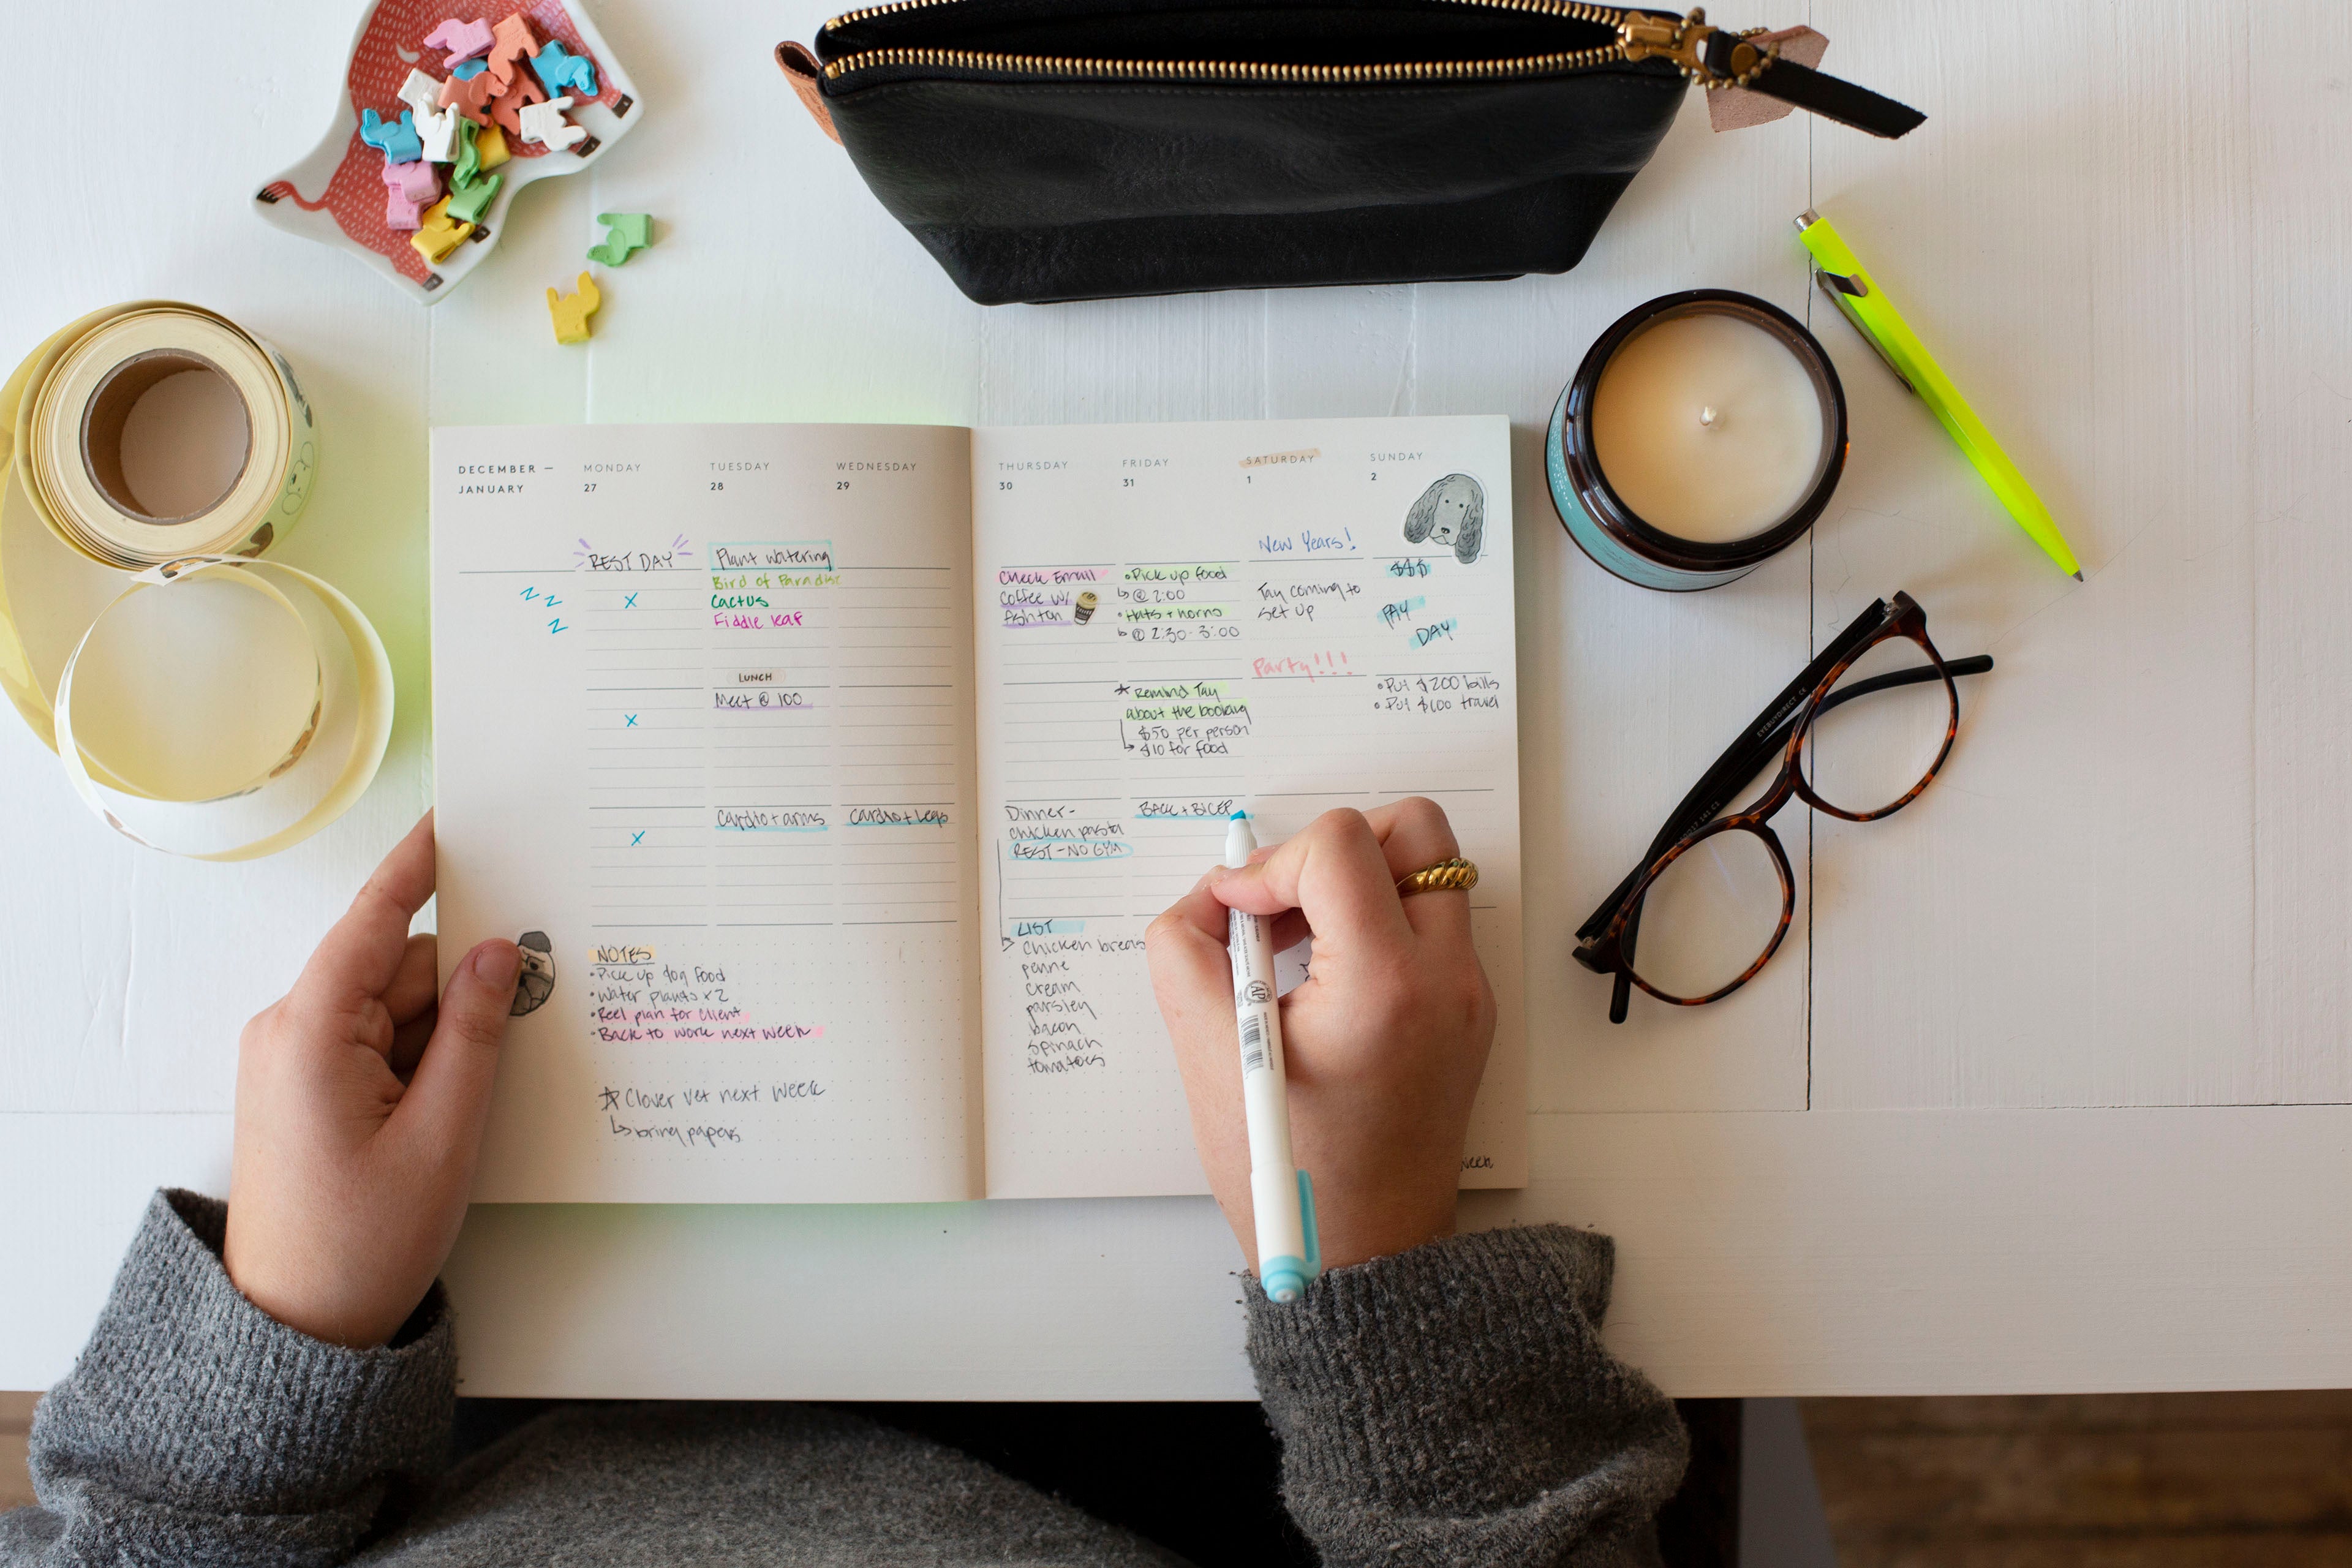 DECEMBER —
JANUARY
MONDAY
27
TUESDAY
28
WEDNESDAY
29
THURSDAY
30
FRIDAY
31
SATURDAY
1
SUNDAY
2
REST DAY
z z z
x
x
x
Plant watering
Bird of Paradise
Cactus
Fiddle leaf
LUNCH
Meet @ 100
Cardio + arms
Cardio + Legs
NOTES
• Pick up dog food
• Water plants x 2
• Reel plan for client
• Back to work next week
Clover vet next week
bring papers
Check Email
Coffee w/
Ashton
Dinner -
chicken pasta
REST - NO GYM
LIST
chicken breas
penne
cream
parsley
bacon
spinach
tomatoes
• Pick up food
@ 2:00
• Hats + horns
@ 2:30 - 3:00
* Remind Tay
about the booking
$50 per person
$10 for food
BACK + BICEP
New Years!
Tay coming to
set up
Party!!!
$$$
PAY
DAY
• Put $200 bills
• Put $600 travel
week
EYEBUYDIRECT CE
AP